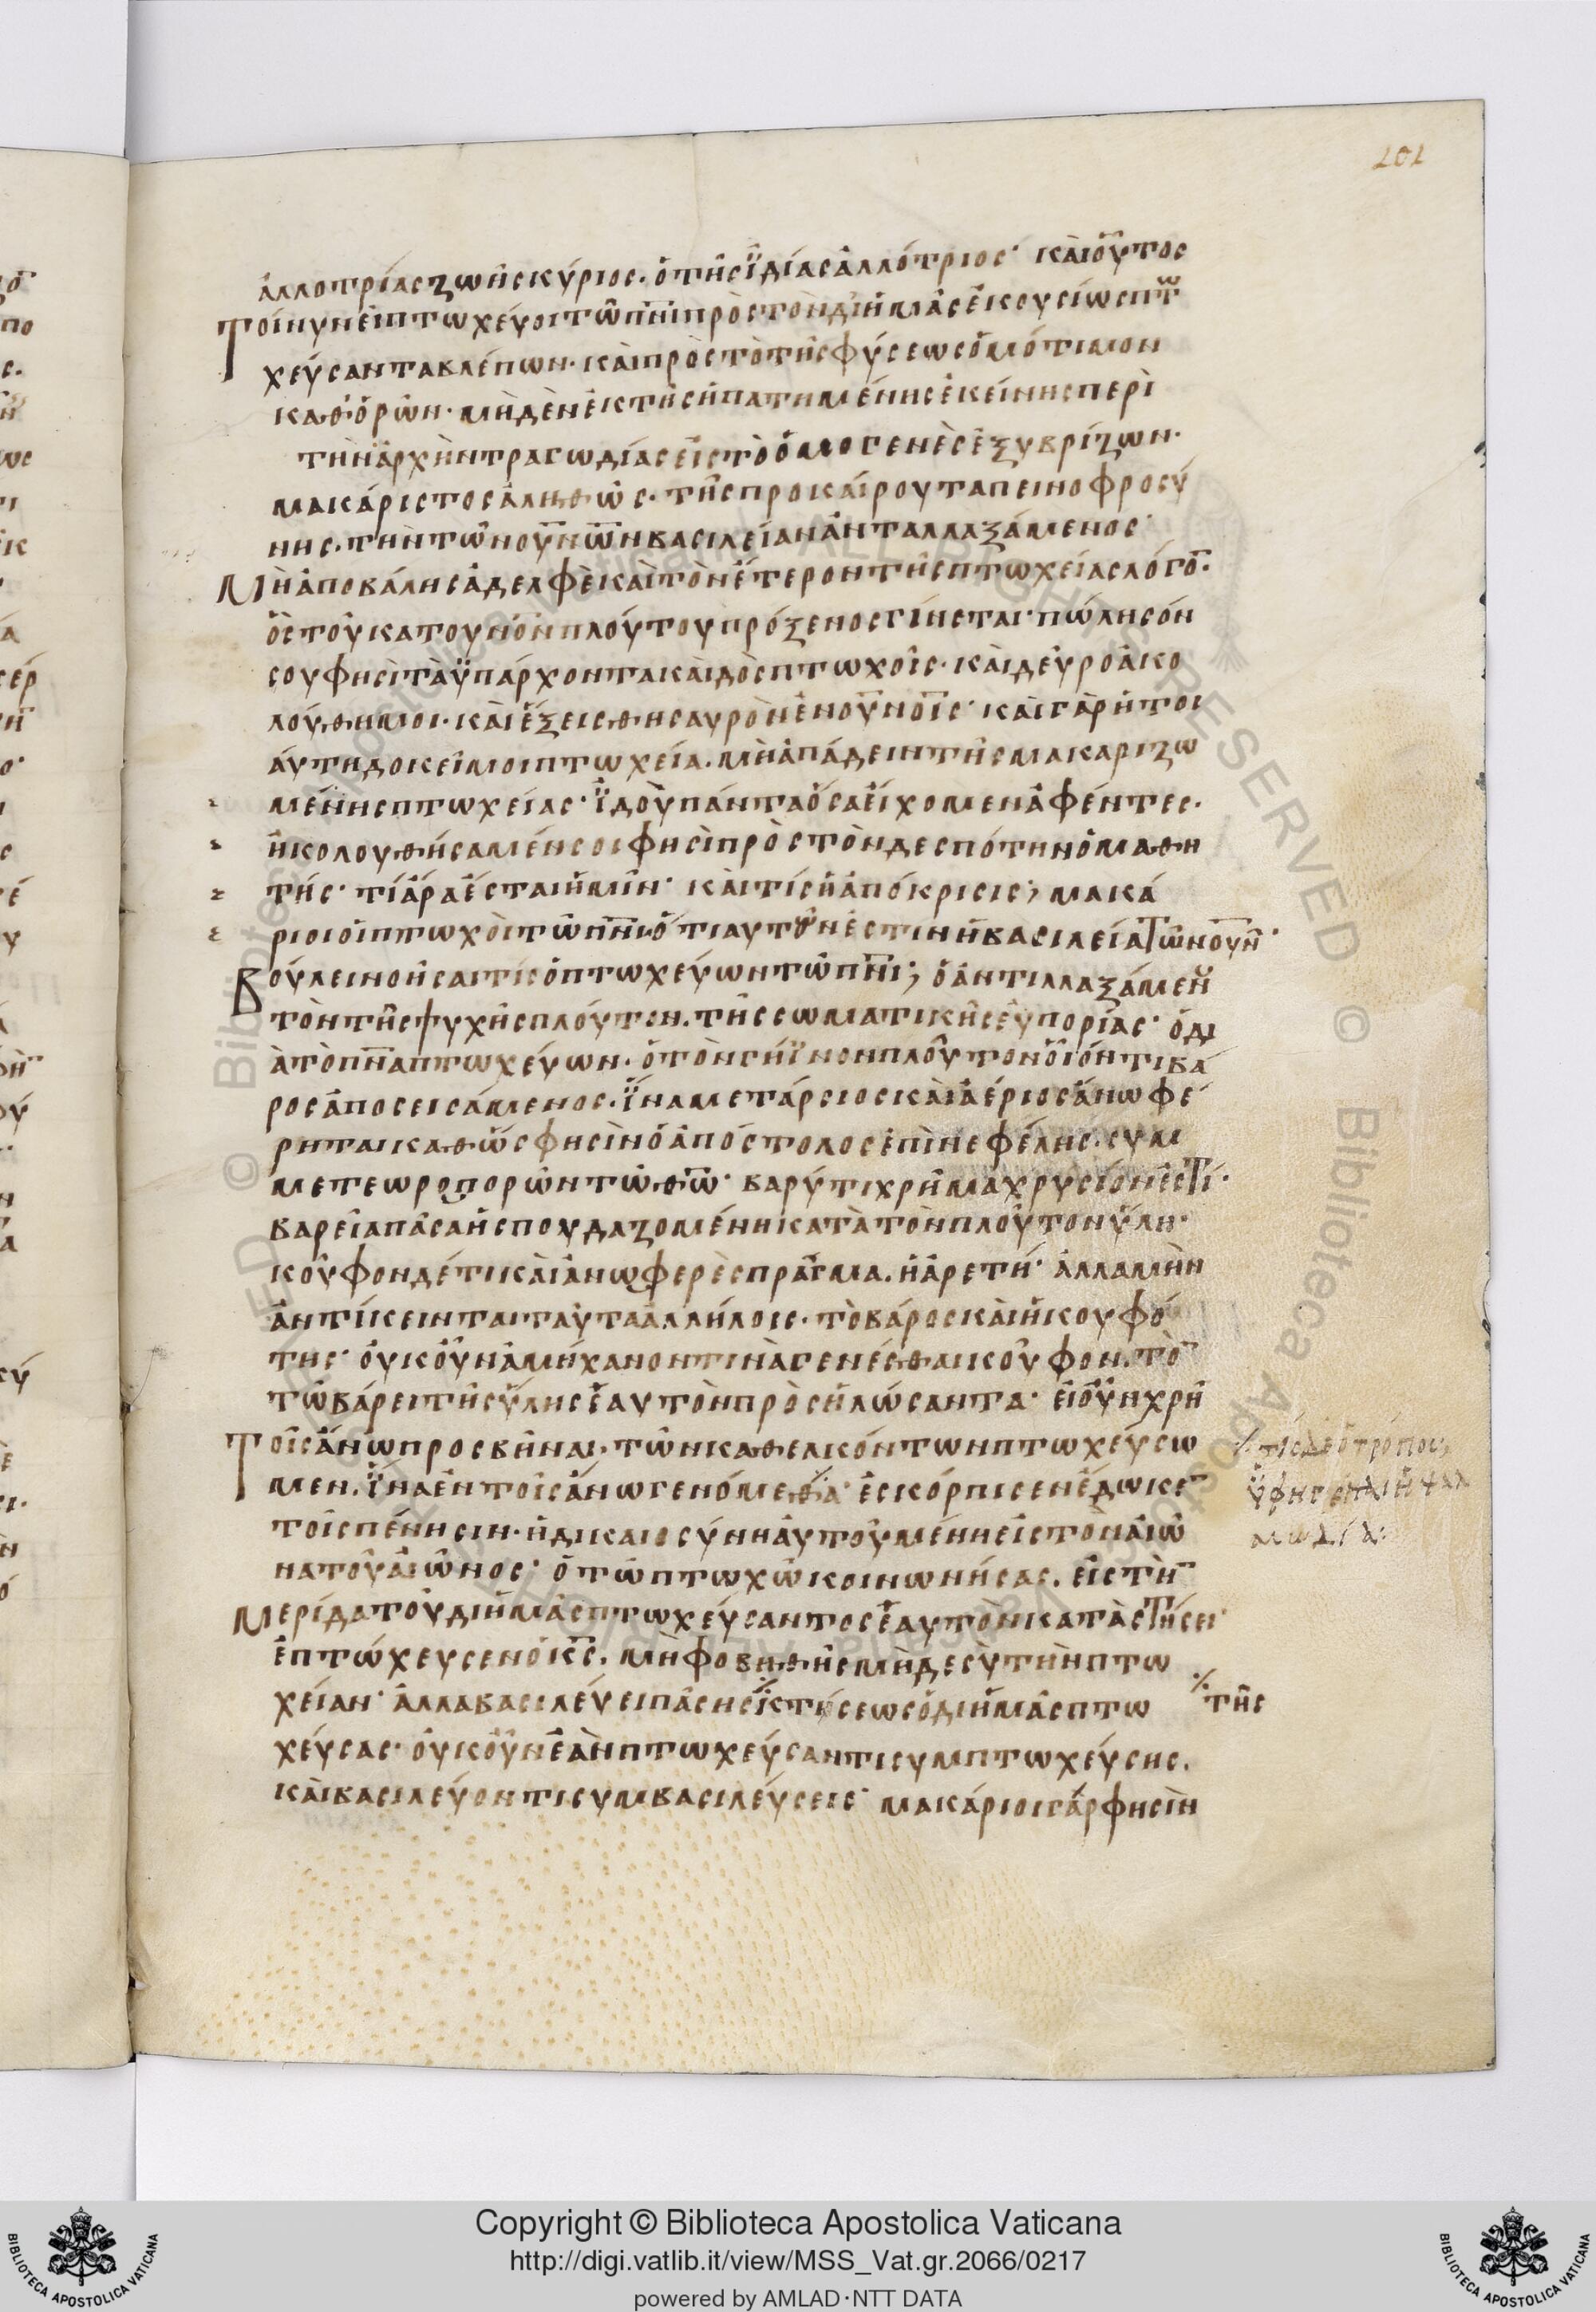 101
ἀλλοτρίας ζωῆς κύριος. ὁ τῆς ἰδίας ἀλλότριος· καὶ οὗτος
τοίνυν εἰ πτωχεύοι τῶ πνι πρὸς τὸν δι ἡμᾶς ἑκουσίως πτω
χεύσαντα βλέπων· καὶ πρὸς τὸ τῆς φύσεως ὁμότιμον
καθορῶν· μηδὲν ἐκ τῆς ἠπατημένης ἐκείνης περὶ
τὴν ἀρχὴν τραγωδίας εἰς τὸ ὁμογενὲς ἐξυβρίζων·
μακάριστος ἀληθῶς· τῆς προκαίρου ταπεινοφροσύ
νης. τὴν τῶν ουνων βασιλείαν ἀνταλλαξάμενος·
Μὴ ἀποβάλης ἀδελφὲ καὶ τὸν ἕτερον τῆς πτωχείας λόγο̅·
ὃς τοῦ κατ ουνὸν πλούτου πρόξενος γίνεται· πώλησόν
σου φησὶ τὰ ὑπάρχοντα καὶ δὸς πτωχοῖς· καὶ δεῦρο ἀκο
λούθη μοι· καὶ ἕξεις θησαυρὸν ἐν ουνοῖς· καὶ γὰρ ἤτοι
αὕτη δοκεῖ μοι πτωχεία. μὴ ἀπάδειν τῆς μακαριζω
μένης πτωχείας· ἰδοὺ πάντα ὅσα εἴχομεν ἀφέντες.
ἠκολουθήσαμέν σοι φησὶ πρὸς τὸν δεσπότην ὁ μαθη
τής· τί ἄρα ἔσται ἡμῖν· καὶ τίς ἡ ἀπόκρισις; μακά
ριοι οἱ πτωχοὶ τῶ πνι. ὅτι αυτῶν ἐστιν ἡ βασιλεία τῶν ουν·
Βούλει νοῆσαι τίς ὁ πτωχεύων τῶ πνι; ὁ ἀντιλλαξάμεν
τὸν τῆς ψυχῆς πλοῦτον. τῆς σωματικῆς εὐπορίας· ὁ δι
ὰ τὸ πνα πτωχεύων. ὁ τὸν γήϊνον πλοῦτον οἷόν τι βά
ρος ἀποσεισάμενος. ἵνα μετάρσιος καὶ ἀέριος ἄνω φέ
ρηται καθώς φησὶν ὁ ἀπόστολος ἐπὶ νεφέλης. συμ
μετεωροπορῶν τῶ θω· βαρύ τι χρῆμα χρυσίον ἐστί·
βαρεῖα πᾶσα ἡ σπουδαζομένη κατὰ τὸν πλοῦτον ὕλη·
κοῦφον δέ τι καὶ ἀνωφερὲς πρᾶγμα. ἡ ἀρετή· ἀλλα μὴν
ἀντίκεινται ταῦτα ἀλλήλοις· τὸ βάρος καὶ ἡ κουφό
της· οὐκοῦν ἀμήχανον τινὰ γενέσθαι κοῦφον. τὸ̅
τῶ βάρει τῆς ὕλης ἑαυτὸν προσηλώσαντα· εἰ οὖν χρὴ
τοῖς ἄνω προσβῆναι· τῶν καθελκόντων πτωχεύσω
μεν. ἵνα ἐν τοῖς ἄνω γενόμεθα· ἐσκόρπισεν ἔδωκε̅
τοῖς πένησιν· ἡ δικαιοσύνη αὐτοῦ μένη εἰς τὸν αἰῶ
να τοῦ αἰῶνος· ὁ τῶ πτωχῶ κοινωνήσας. εἰς τὴ̅
μερίδα τοῦ δι ἡμᾶς πτωχεύσαντος ἑαυτὸν καταστήσει·
ἐπτώχευσεν ὁ κς. μὴ φοβηθῆς μὴδε σὺ τὴν πτω
χείαν· ἀλλα βασιλεύει πάσης κτίσεως ὁ δι ἡμᾶς πτω
χεύσας· οὐκοῦν ἐὰν πτωχεύσαντι συμπτωχεύσης.
καὶ βασιλεύοντι συμβασιλεύσεις· μακάριοι γάρ φησὶν
τίς δὲ ὁ τρόπος
ὑφηγεῖται ἡ ψαλ
μωδία·
τῆς
Copyright © Biblioteca Apostolica Vaticana
http://digi.vatlib.it/view/MSS_Vat.gr.2066/0217
powered by AMLAD·NTT DATA
BIBLIOTECA APOSTOLICA VATICANA
BIBLIOTECA APOSTOLICA VATICANA